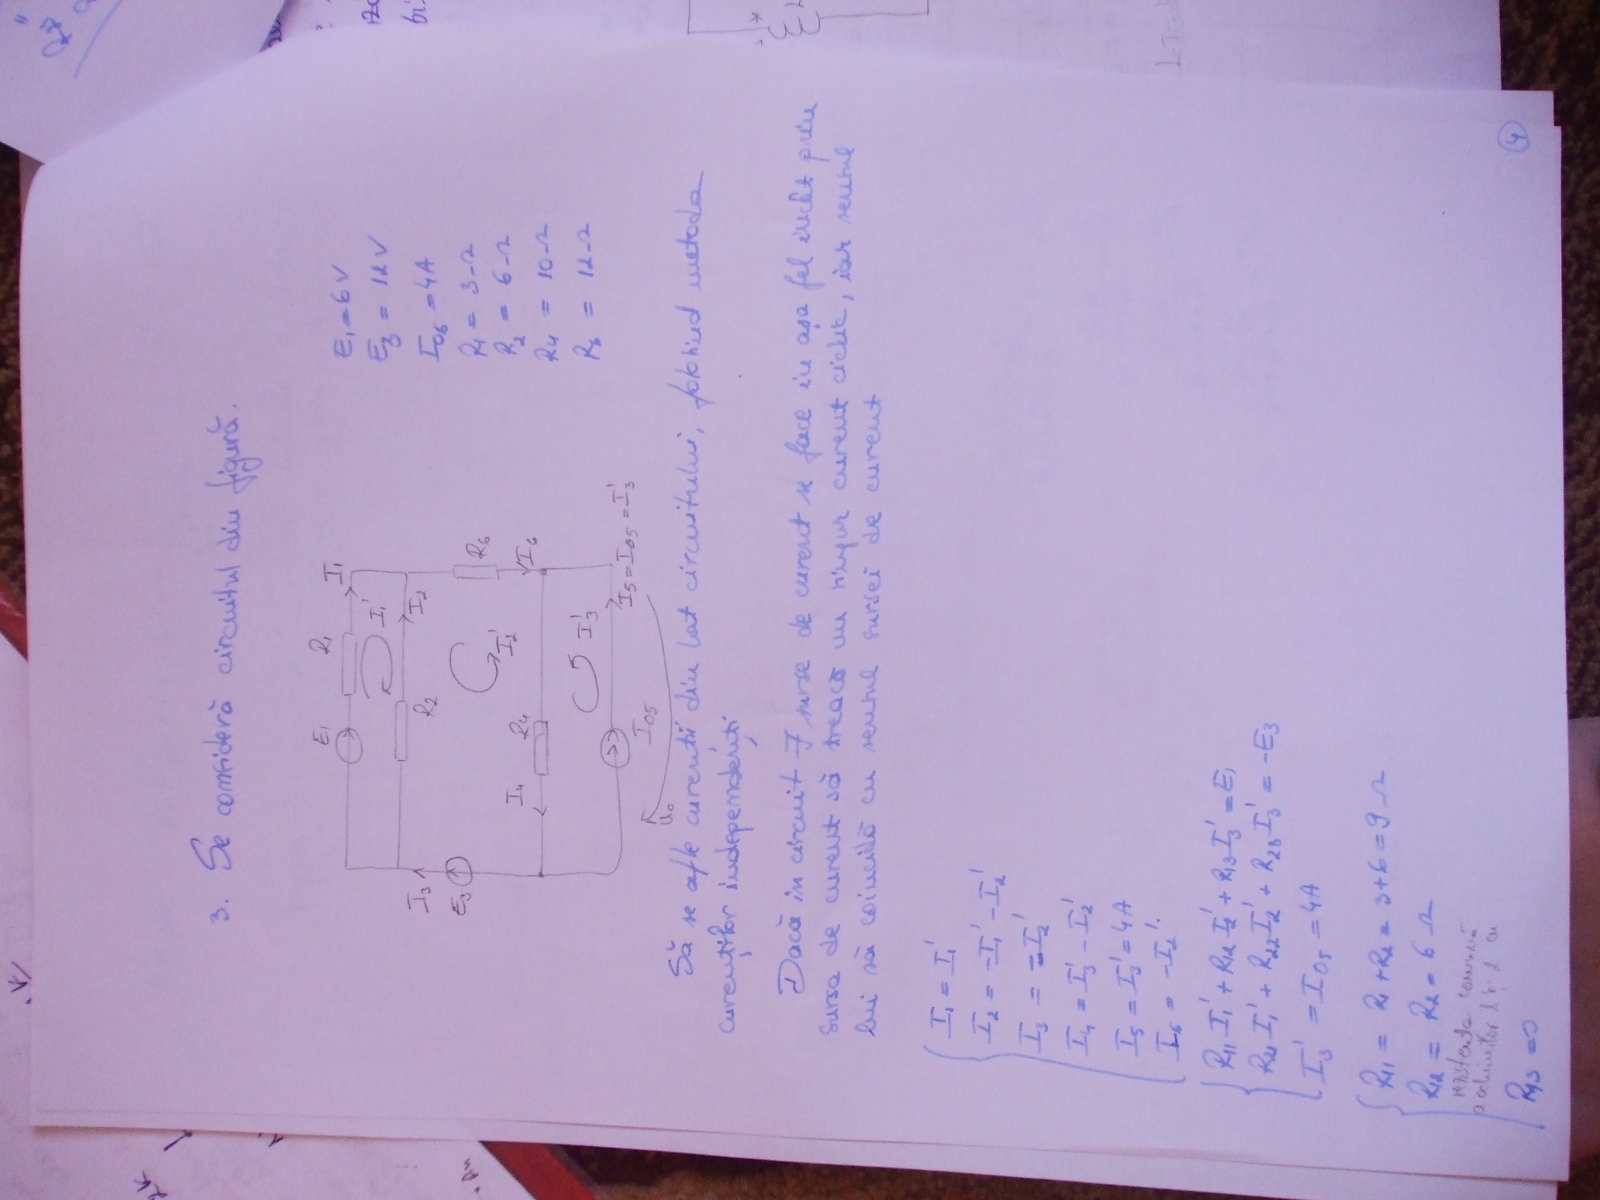 3. Se consideră circuitul din figură.
E1 R1 I1
I1'
I3 R2 I2
E3 R6
I2'
I4 R4 I6
I3'
I05 I5 = I05 = I3'
u0
E1 = 6V
E3 = 12V
I06 = 4A
R1 = 3Ω
R2 = 6Ω
R4 = 10Ω
R6 = 12Ω
Să se afle curenții din lat circuitului, folosind metoda
curenților independenți
Dacă în circuit ∃ surse de curent se face in așa fel încât prin
sursa de curent să treacă un singur curent ciclic, iar sensul
lui să coincidă cu sensul sursei de curent
I1 = I1'
I2 = -I1' - I2'
I3 = -I2'
I4 = I3' - I2'
I5 = I3' = 4A
I6 = -I2'.
R11 I1' + R12 I2' + R13 I3' = E1
R21 I1' + R22 I2' + R23 I3' = -E3
I3' = I05 = 4A
R11 = R1 + R2 = 3+6 = 9Ω
R12 = R2 = 6Ω
rezistența comună
a ochiurilor 1 și 2 cu
R13 = 0
4
2K
R21 =